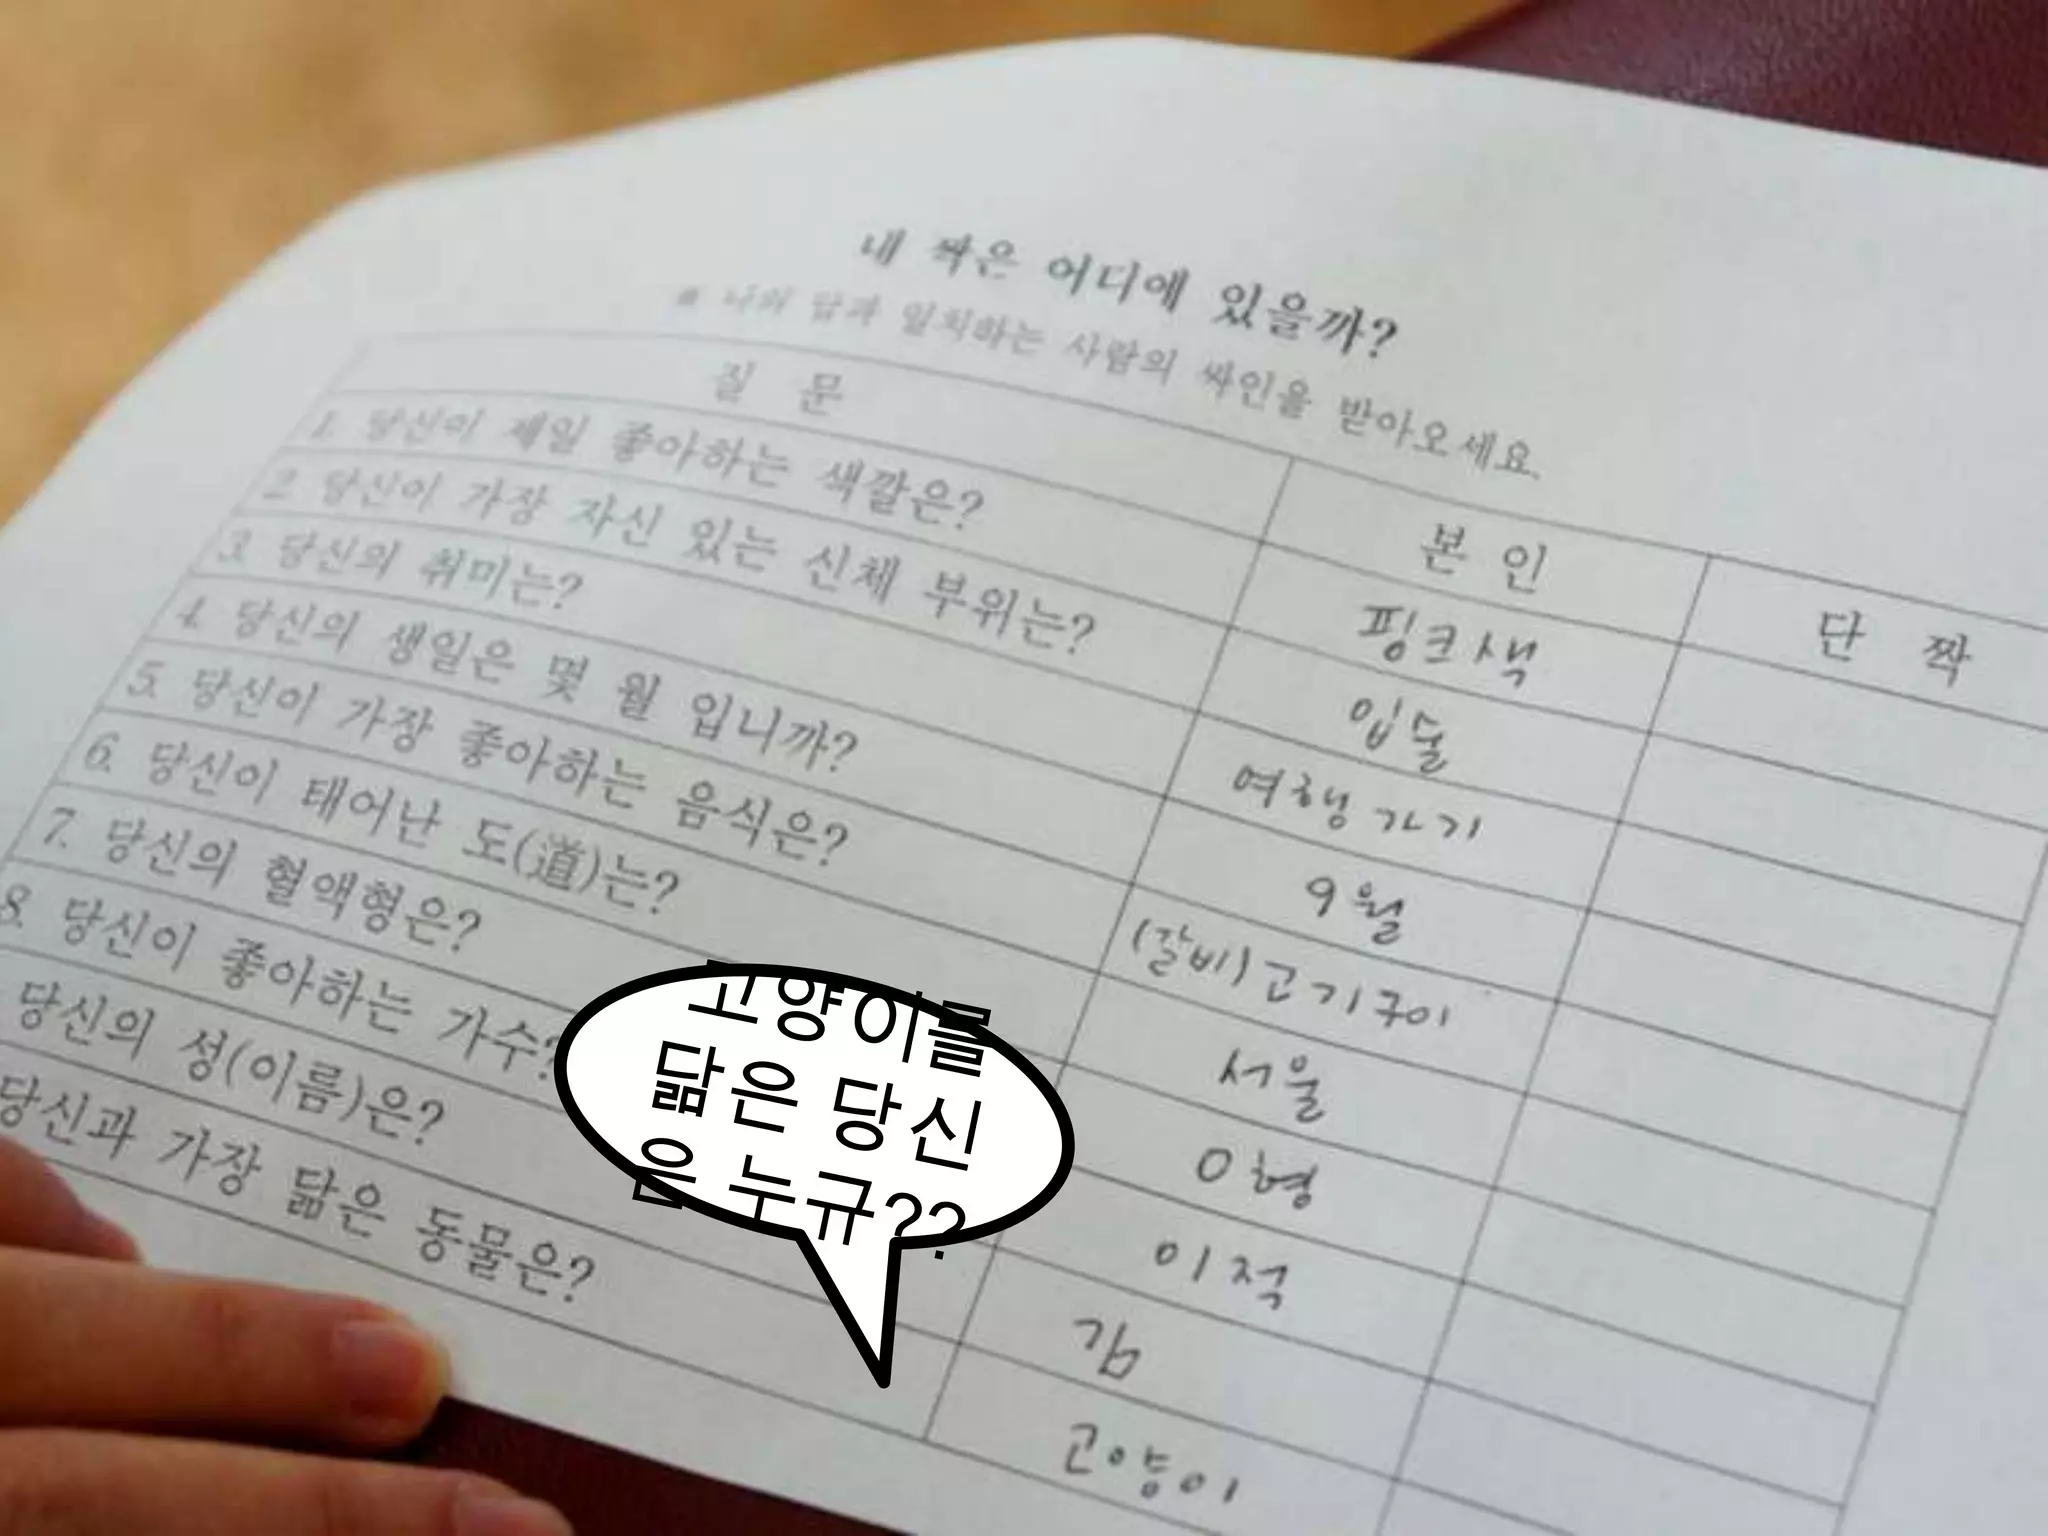 내 짝은 어디에 있을까?
※ 나의 답과 일치하는 사람의 싸인을 받아오세요.
질 문 본 인 단 짝
1. 당신이 제일 좋아하는 색깔은? 핑크색
2. 당신이 가장 자신 있는 신체 부위는? 입술
3. 당신의 취미는? 여행 가기
4. 당신의 생일은 몇 월 입니까? 9월
5. 당신이 가장 좋아하는 음식은? (갈비)고기구이
6. 당신이 태어난 도(道)는? 서울
7. 당신의 혈액형은? O형
8. 당신이 좋아하는 가수? 이적
당신의 성(이름)은? 김
당신과 가장 닮은 동물은? 고양이
고양이를
닮은 당신
은 누규??